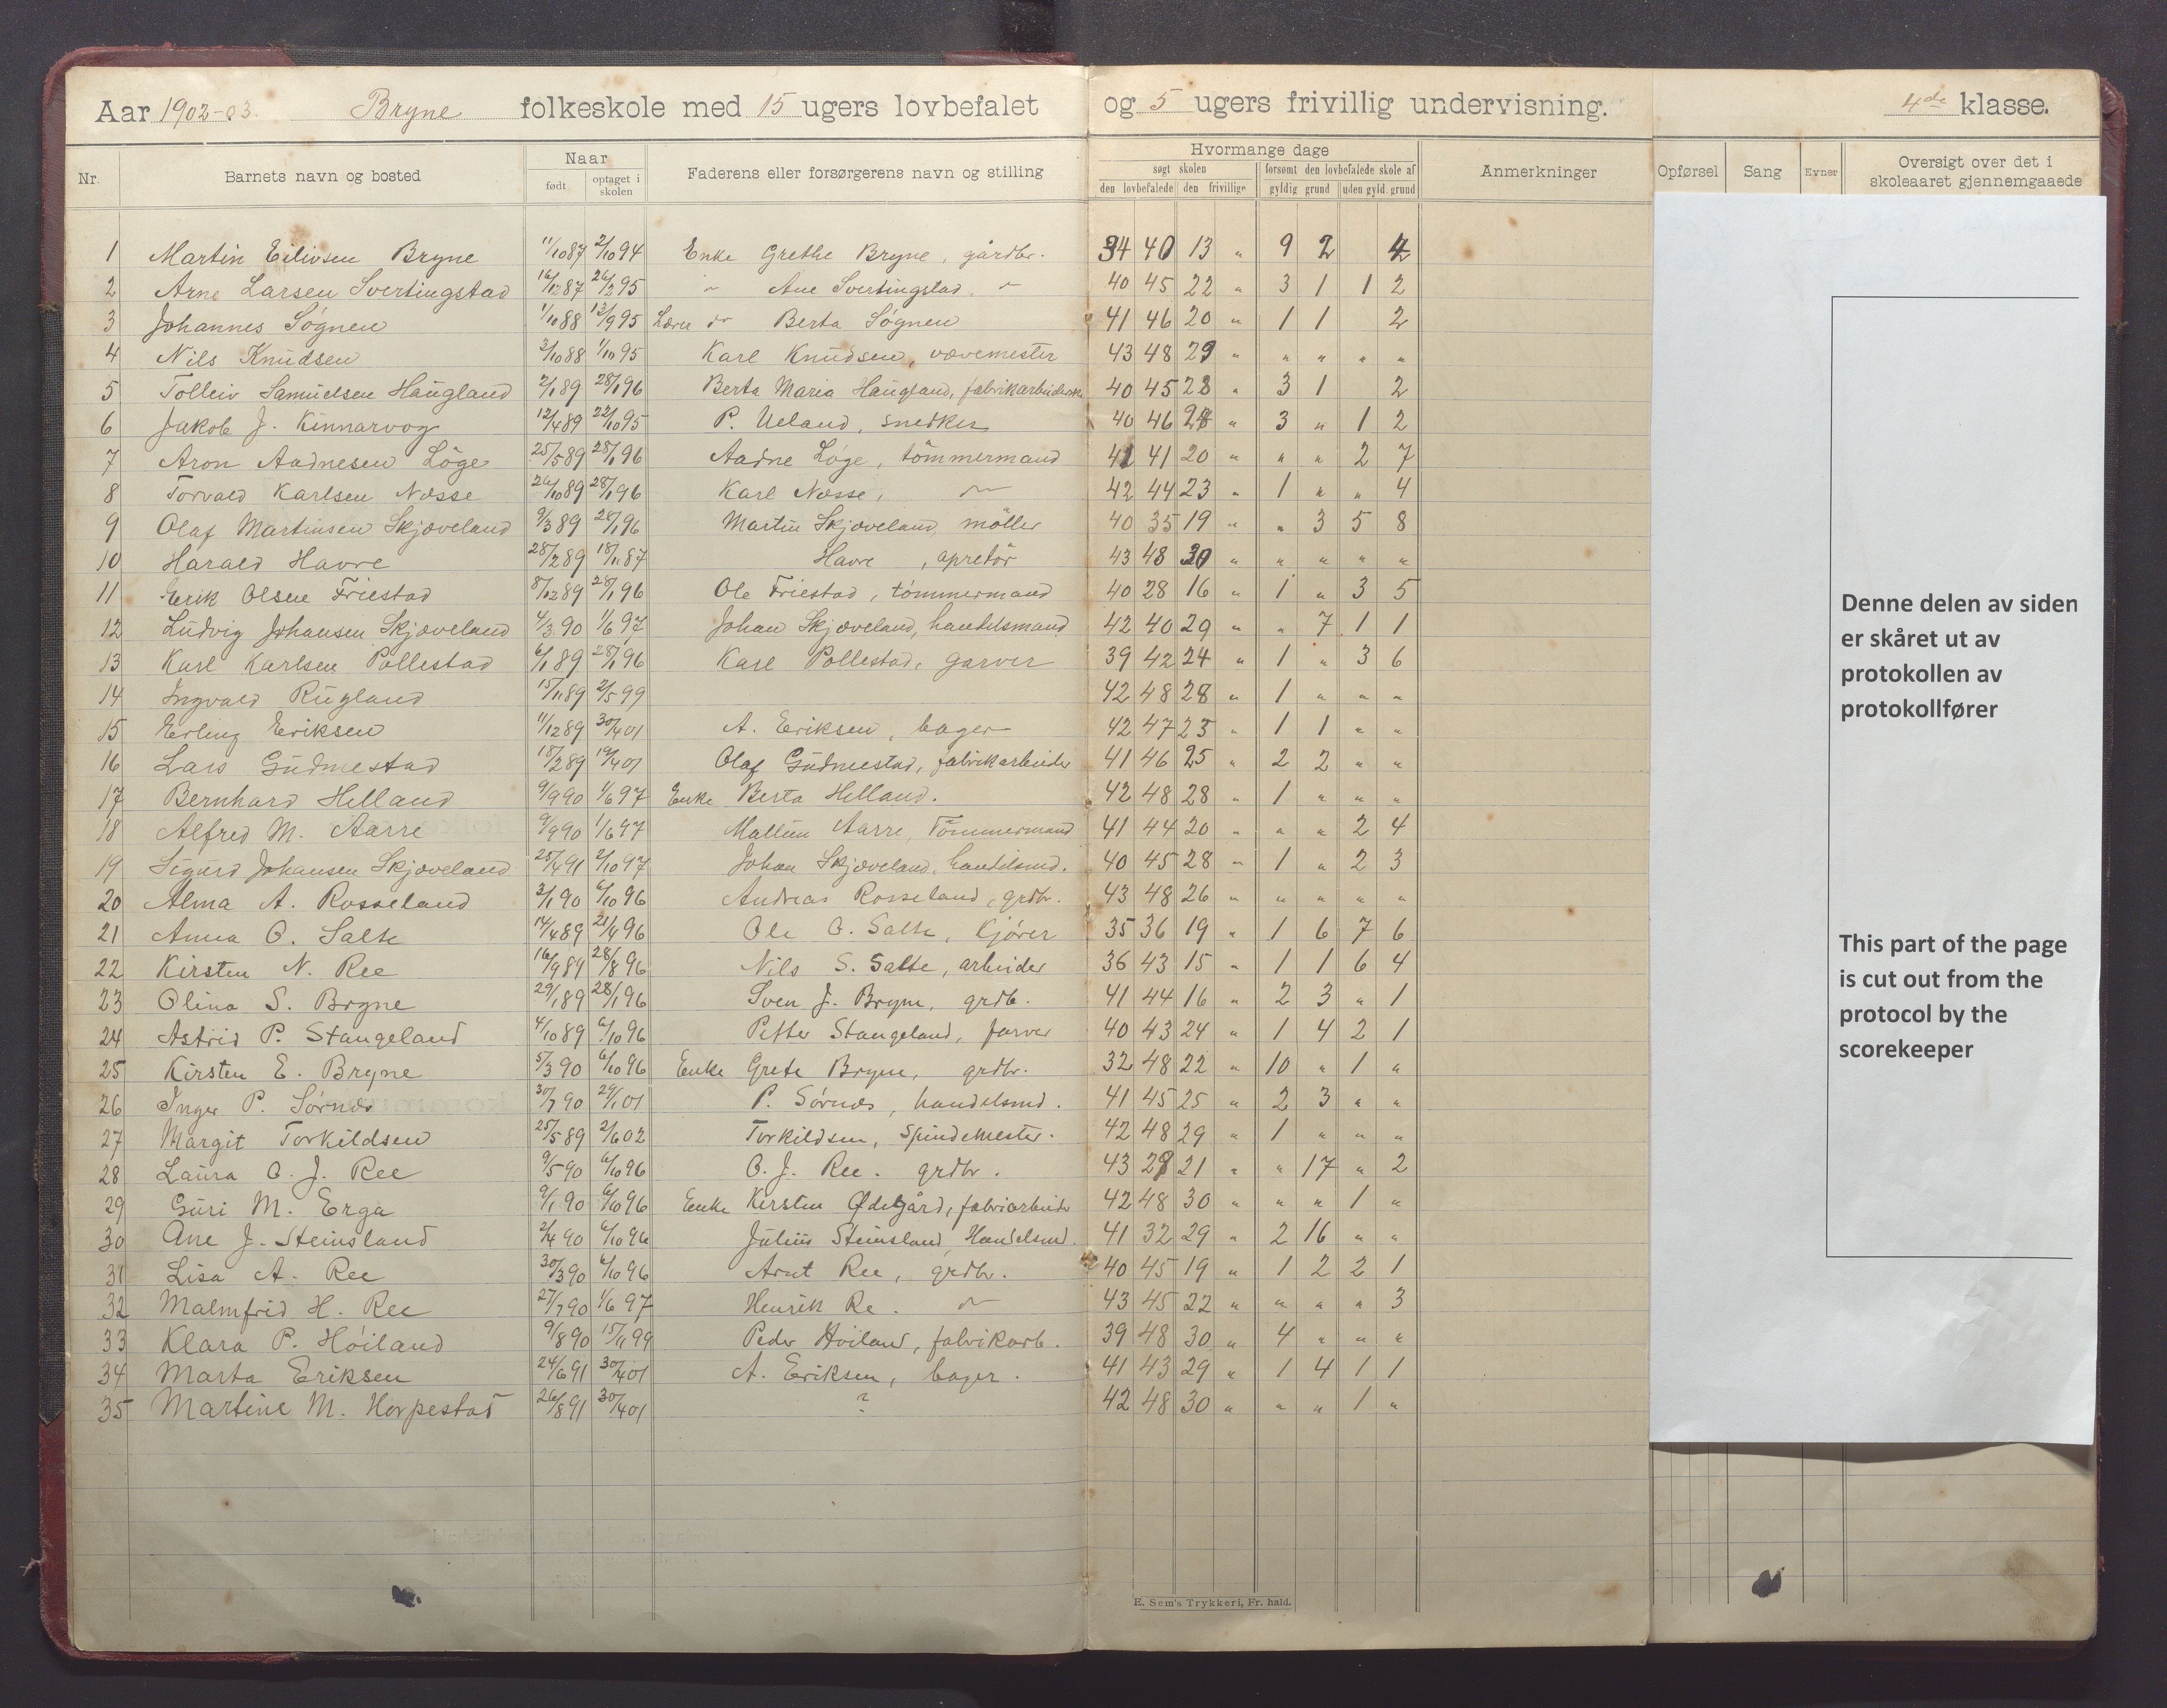 Aar 1902-03. Bryne folkeskole med 15 ugers lovbefalet og 5 ugers frivillig undervisning. 4de klasse.
Nr. Barnets navn og bosted Naar født optaget i skolen Faderens eller forsørgerens navn og stilling Hvormange dage søgt skolen den lovbefalede den frivillige forsømt den lovbefalede skole af gyldig grund uden gyld. grund Anmerkninger Opførsel Sang Evner Oversigt over det i skoleaaret gjennemgaaede
1 Martin Eilivsen Bryne 11/10 87 2/10 94 Enke Grethe Bryne, gårdbr. 34 40 13 " 9 2 4
2 Arne Larsen Svertingstad 16/12 87 26/2 95 " Ane Svertingstad " 40 45 22 " 3 1 1 2
3 Johannes Søgnen 1/10 88 13/9 95 Berta Søgnen 41 46 20 " 1 1 2
4 Nils Knudsen 3/10 88 1/10 95 Karl Knudsen, vævemester 43 48 29 " " " " "
5 Tolleiv Samuelsen Haugland 2/1 89 28/1 96 Berta Maria Haugland, fabrikarbeiderske 40 45 28 " 3 1 2
6 Jakob J. Kinnarvog 12/4 89 22/10 95 P. Ueland, snedker 40 46 " 3 " 1 2
7 Aron Aadnesen Löge 25/5 89 28/1 96 Aadne Löge, tömmermand 41 41 20 " " " 2 7
8 Torvald Karlsen Næsse 26/10 89 28/1 96 Karl Næsse, " 42 44 23 " 1 " " 4
9 Olaf Martinsen Skjæveland 9/3 89 28/1 96 Martin Skjæveland, möller 40 35 19 " " 3 5 8
10 Harald Havre 28/2 89 18/11 87 Havre, apretör 43 48 30 " " " " "
11 Erik Olsen Friestad 8/12 89 28/1 96 Ole Friestad, tömmermand 40 28 16 " 1 " 3 5
12 Ludvig Johansen Skjæveland 4/3 90 1/6 97 Johan Skjæveland, handelsmand 42 40 29 " " 7 1 1
13 Karl Karlsen Pollestad 6/1 89 28/1 96 Karl Pollestad, garver 39 42 24 " 1 " 3 6
14 Ingvald Rugland 15/11 89 2/5 99 42 48 28 " 1 " " "
15 Erling Eriksen 11/12 89 30/4 01 A. Eriksen, bager 42 47 23 " 1 1 " "
16 Lars Gudmestad 18/2 89 19/4 01 Olaf Gudmestad, fabrikarbeider 41 46 25 " 2 2 " "
17 Bernhard Helland 9/9 90 1/6 97 Enke Berta Helland. 42 48 28 " 1 " " "
18 Alfred M. Aarre 9/9 90 1/6 97 Aarre, Tömmermand 41 44 20 " " " 2 4
19 Sigurd Johansen Skjæveland 25/4 91 2/10 97 Johan Skjæveland, handelsmd. 40 45 28 " 1 " 2 3
20 Alma A. Rosseland 3/1 90 6/10 96 Andreas Rosseland, grdbr. 43 48 26 " " " " "
21 Anna O. Salte 14/4 89 21/4 96 Ole O. Salte, Kjörer 35 36 19 " 1 6 7 6
22 Kirsten N. Ree 16/9 89 28/8 96 Nils S. Salte, arbeider 36 43 15 " 1 1 6 4
23 Olina S. Bryne 29/1 89 28/1 96 Sven J. Bryne, grdb. 41 44 16 " 2 3 " 1
24 Astrid P. Stangeland 4/10 89 6/10 96 Petter Stangeland, farver 40 43 24 " 1 4 2 1
25 Kirsten E. Bryne 5/3 90 6/10 96 Enke Grete Bryne, grdbr. 32 48 22 " 10 " 1 "
26 Inger P. Sørnæs 30/7 90 29/1 01 P. Sörnæs, handelsmd. 41 45 25 " 2 3 " "
27 Margit Torkildsen 25/5 89 2/6 02 Torkildsen, Spindemester. 42 48 29 " 1 " " "
28 Laura O. J. Ree 9/5 90 6/10 96 O. J. Ree. grdbr. 43 29 21 " " 17 " 2
29 Guri M. Erga 9/1 90 6/10 96 Enke Kirsten Ødegård, fabriarbeider 42 48 30 " " " 1 "
30 Ane J. Steinsland 2/4 90 6/10 96 Julius Steinsland, Handelsmd. 41 32 29 " 2 16 " "
31 Lisa A. Ree 30/3 90 6/10 96 Arnt Ree, grdbr. 40 45 19 " 1 2 2 1
32 Malmfrid H. Ree 27/7 90 1/6 97 Henrik Re. " 43 45 22 " " " " 3
33 Klara P. Höiland 9/8 90 15/11 99 Peder Höiland, fabrikarb. 39 48 30 " 4 " " "
34 Marta Eriksen 24/6 91 30/4 01 A. Eriksen, bager. 41 43 29 " 1 4 1 1
35 Martine M. Horpestad 26/8 91 30/4 01 ? 42 48 30 " " " 1 "
E. Sem's Trykkeri, Fr. hald.
Denne delen av siden
er skåret ut av
protokollen av
protokollfører
This part of the page
is cut out from the
protocol by the
scorekeeper